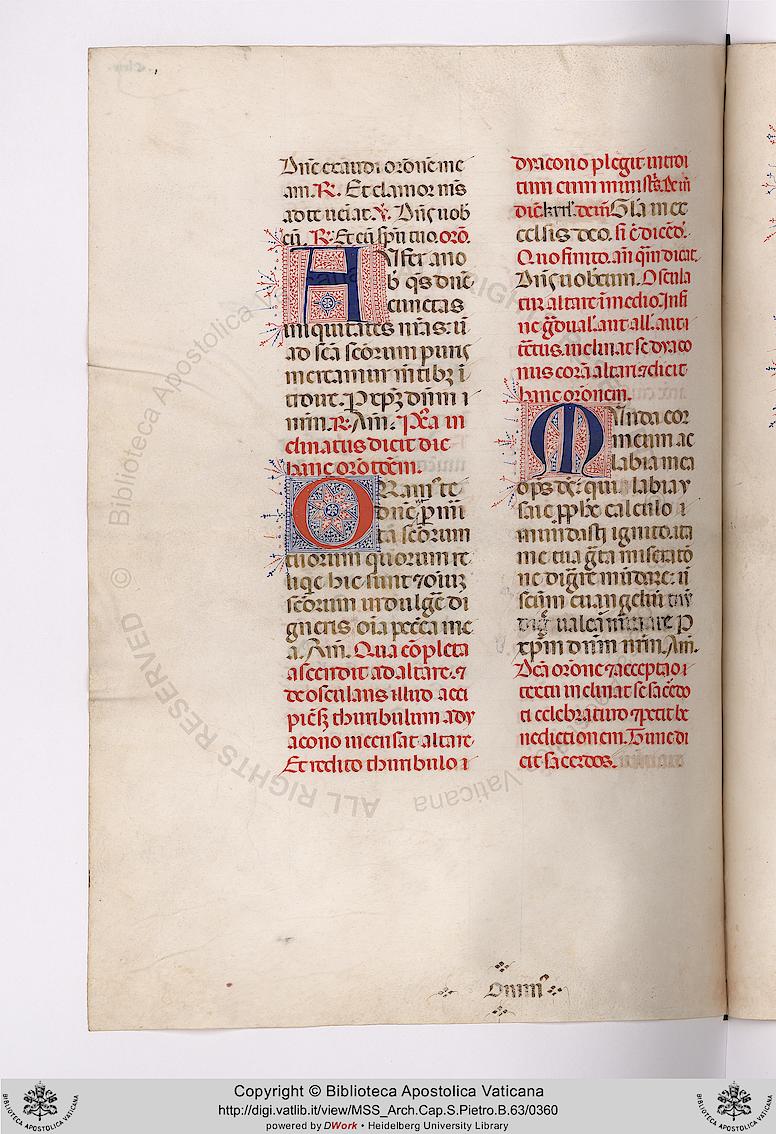 Dn̄e exaudi orōnē me
am. R. Et clamor m̄s
ad te ueniat. V. Dn̄s uob
cū. R. Et cū sp̄u tuo. orō.
Aufer a no
b̄ q̄s dn̄e
cunctas
iniquitates nr̄as: ut
ad sc̄a sc̄orum puris
mereamur mētibꝫ ī
troire. P xp̄ꝫ dnm̄ n
rm̄. R. Am̄. Post ea in
clinatus dicit dic
hanc orōnem.
Oramꝰ te
dn̄e p̄ m̄i
ta sc̄orum
tuorum quorum re
liqe hic sunt ⁊ oīuꝫ
sc̄orum indulge di
gneris oīa pecc̄a me
a. Am̄. Qua cōpleta
ascendit ad altare. ⁊
deosculans illud acci
piēs thuribulum a dy
acono incensat altare
Et reddito thuribulo
dyacono p̄legit introi
tum cum ministris.
Gl̄a in ex
celsis deo. si ē dicēdū.
Quo finito. an̄ q̄m dicat
Dn̄s uobcum. Oscula
tur altare ī medio. In fi
ne g̊dual. aut all̄. aut
tctus. inclinat se dyaco
nus corā altari ⁊ dicit
hanc orōnem.
Munda cor
meum ac
labia mea
op̄s dē: qui labia y
saie pp̄he calculo i
mundasti ignito. ita
me tua g̊ta miseratō
ne dig̊re mūdare: ut
sc̄um euangelium tuū
digne ualeā nūtiare. P
xp̄m dnm̄ nrm̄. Am̄.
Dc̄a orōne ⁊ accepto
textu inclinat se sacerdo
ti celebraturo ⁊ petit be
nedictionem. Tunc di
cit sacerdos.
Omnī
Copyright © Biblioteca Apostolica Vaticana
http://digi.vatlib.it/view/MSS_Arch.Cap.S.Pietro.B.63/0360
powered by DWork • Heidelberg University Library
© Biblioteca Apostolica Vaticana ALL RIGHTS RESERVED